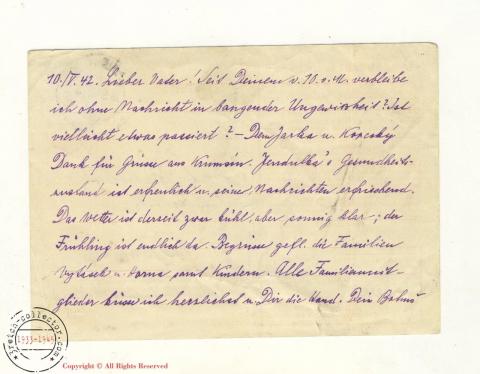 10./V.42. Lieber Vater! Seit Deinem v. 10. v. M. verbleibe
ich ohne Nachricht in bangender Ungewissheit? Ist
vielleicht etwas passiert? – Dem Jarka u.
Dank für Grüsse aus Jendulka's Gesundheits-
zustand ist erfreulich u. seine Nachrichten erfrischend.
Das Wetter ist derzeit zwar kühl, aber sonnig klar; der
Frühling ist endlich da. Begrüsse gefl. die Familien
u. Horna samt Kindern. Alle Familienmit-
glieder küsse ich herzlichst u. Dir die Hand. Dein
3reich-collector.com
1933-1945
Copyright © All Rights Reserved